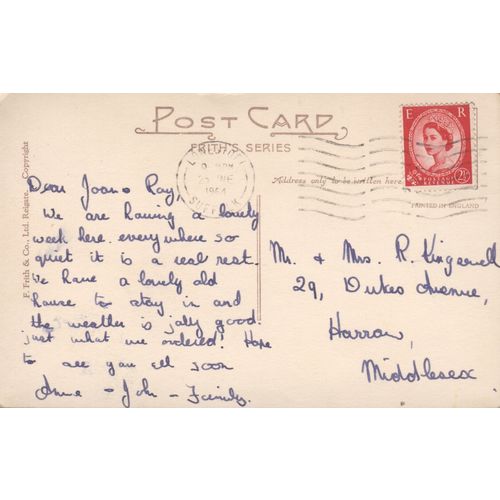 POST CARD
FRITH'S SERIES
Address only to be written here
PRINTED IN ENGLAND
F. Frith & Co., Ltd. Reigate. Copyright
E R
POSTAGE
REVENUE
1954
SUFFOLK
Dear Joan & Ray,
We are having a lovely
week here. everywhere so
quiet it is a real rest.
We have a lovely old
house to stay in and
the weather is jolly good.
just what we ordered! Hope
to see you all soon
Anne - John - Family.
Mr. & Mrs. R. Kingswell
29, Dukes Avenue,
Harrow,
Middlesex